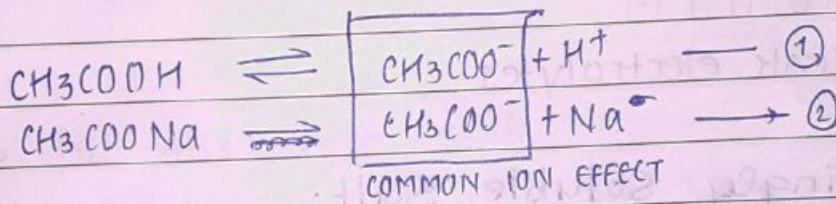 CH3COOH ⇌ CH3COO⁻ + H⁺ — ①
CH3COONa → CH3COO⁻ + Na⁺ → ②
COMMON ION EFFECT